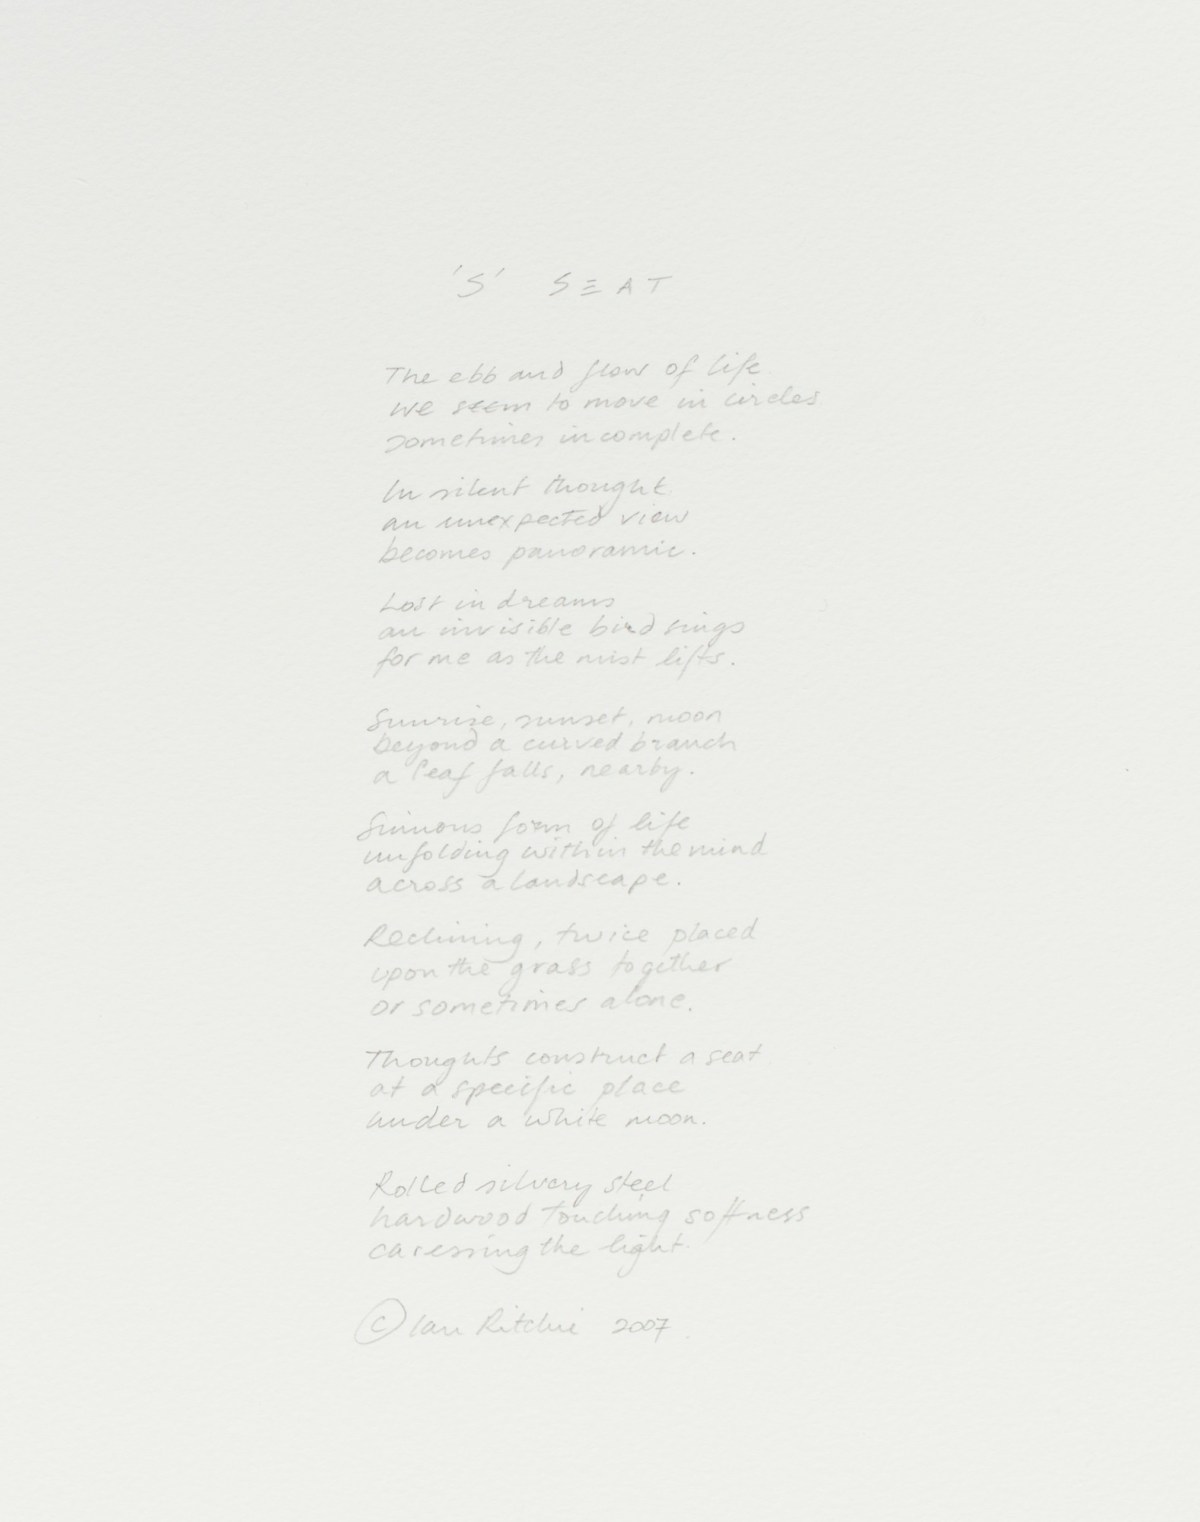 'S' SEAT
The ebb and flow of life
we seem to move in circles
sometimes incomplete.
In silent thought
an unexpected view
becomes panoramic.
Lost in dreams
an invisible bird sings
for me as the mist lifts.
Sunrise, sunset, moon
beyond a curved branch
a leaf falls, nearby.
Sinuous form of life
unfolding within the mind
across a landscape.
Reclining, twice placed
upon the grass together
or sometimes alone.
Thoughts construct a seat
at a specific place
under a white moon.
Rolled silvery steel
hardwood touching softness
caressing the light.
© Ian Ritchie 2007